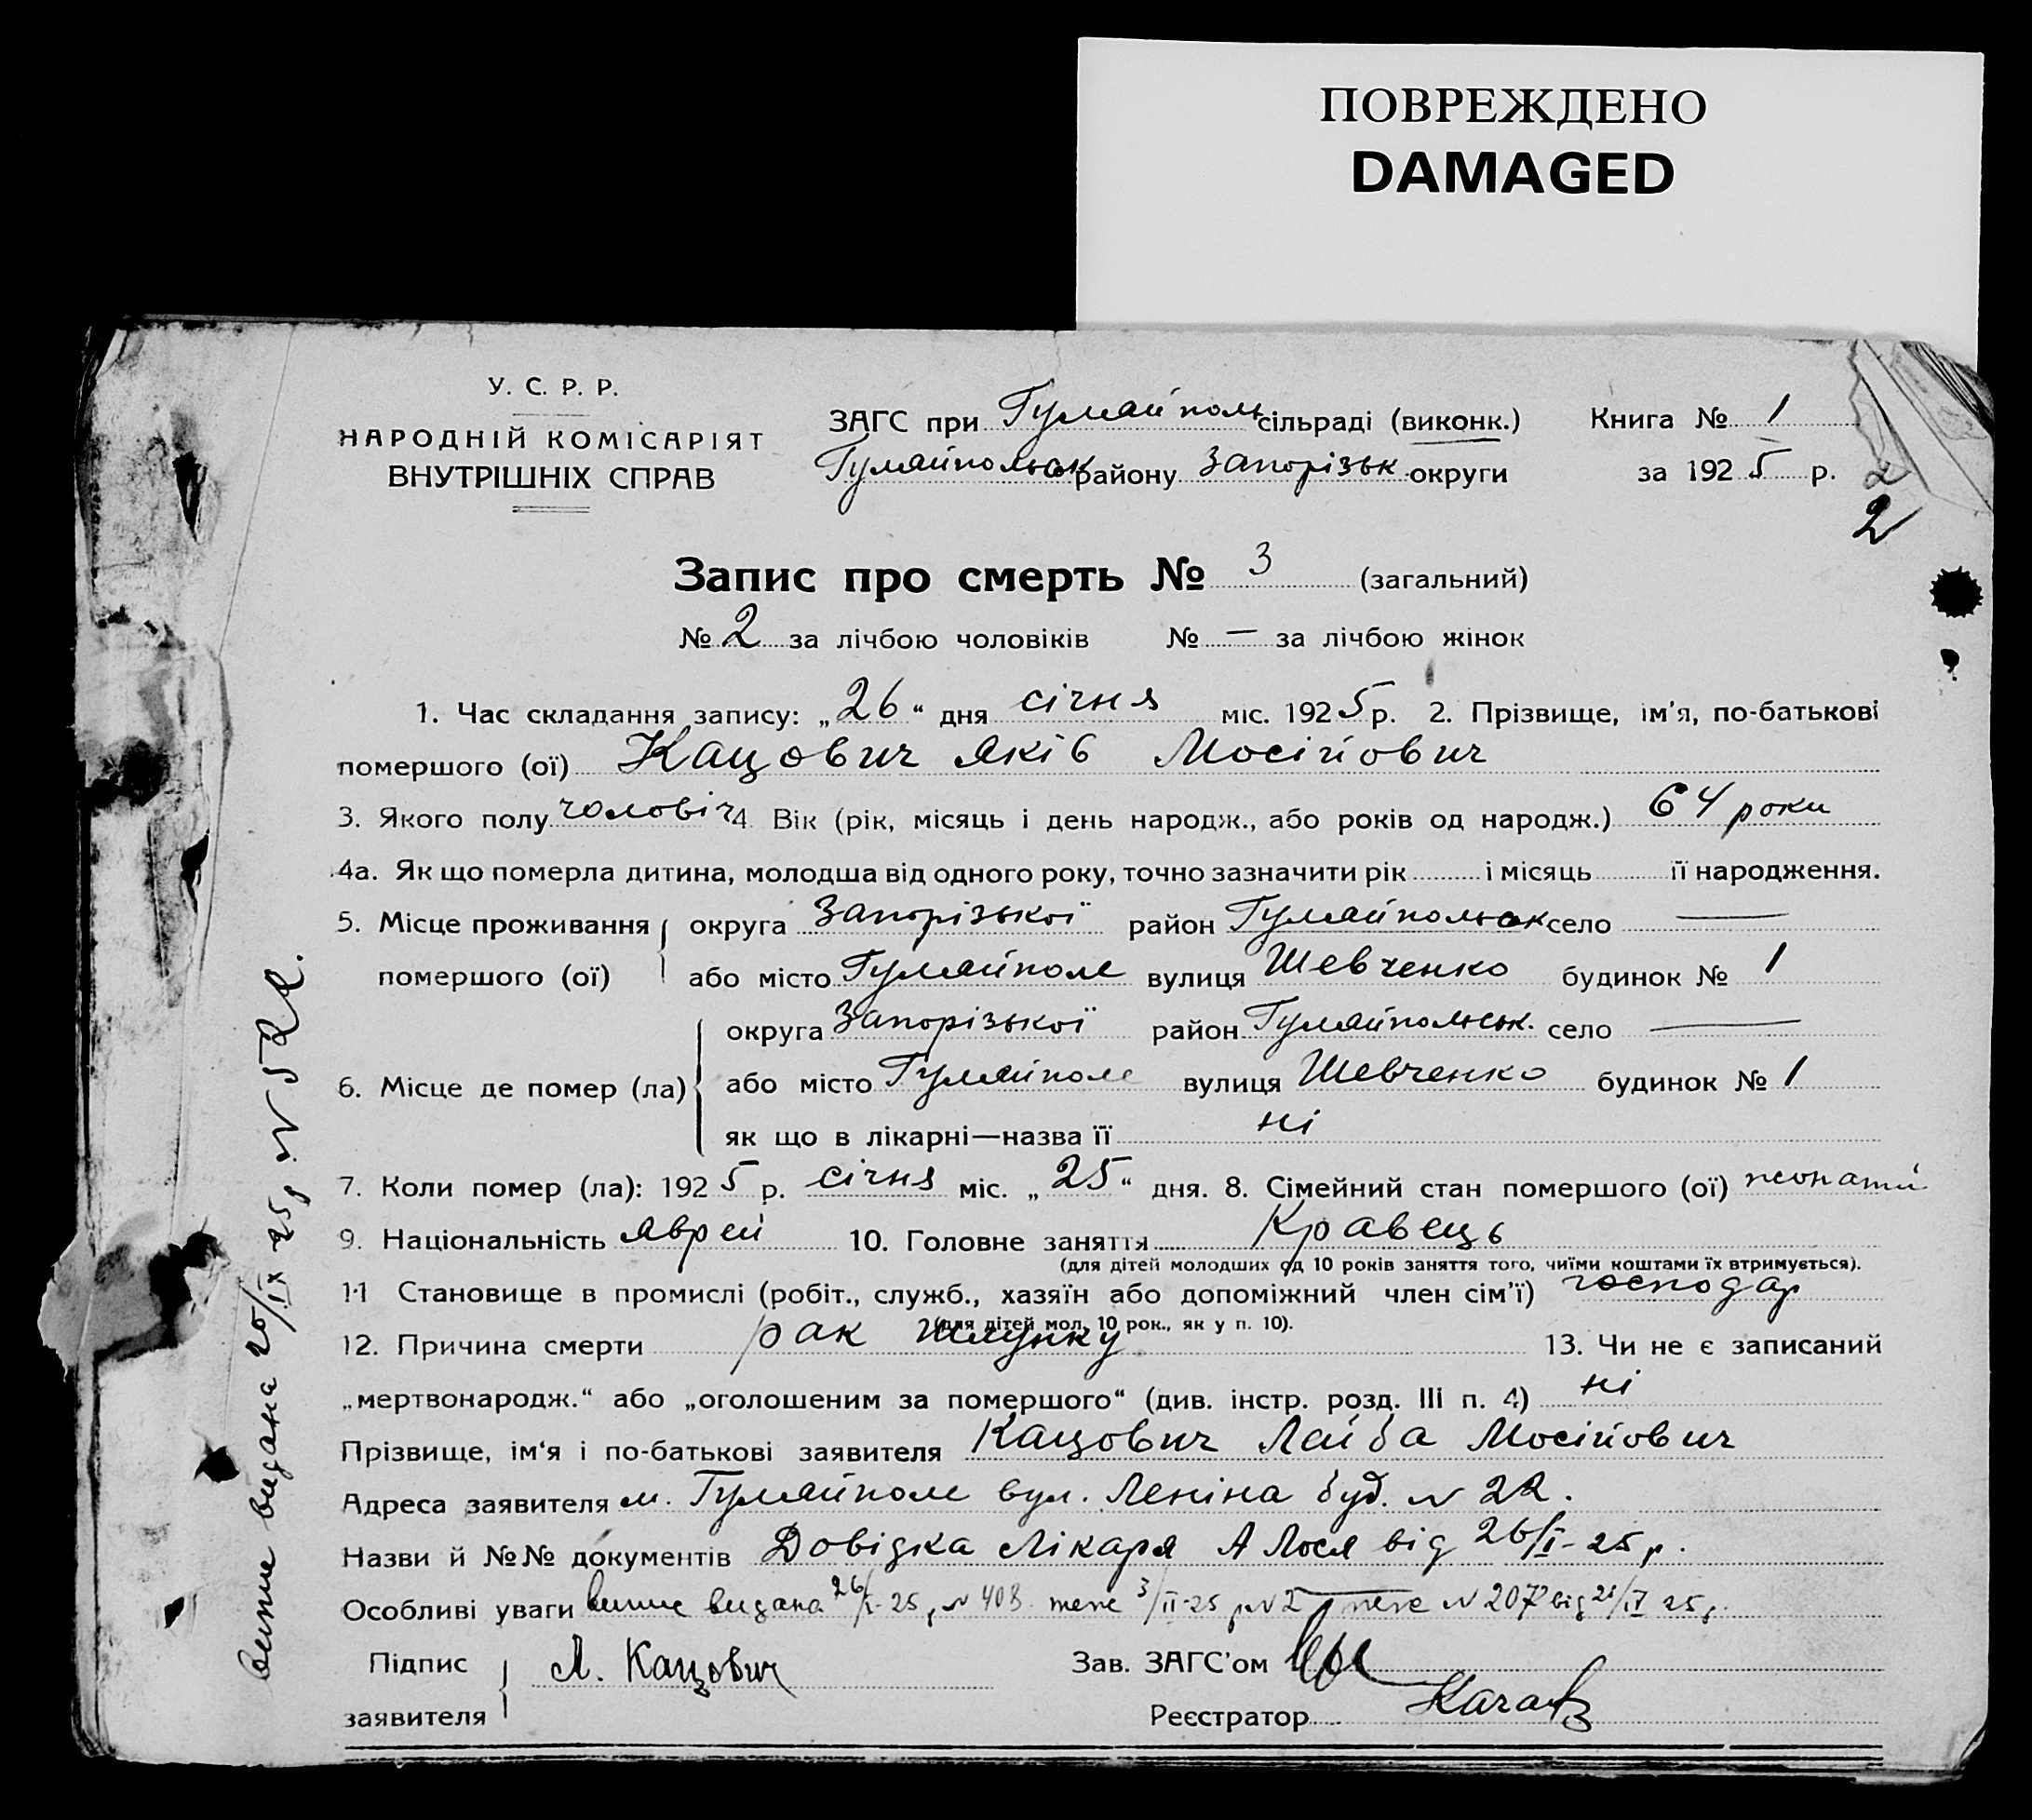 ПОВРЕЖДЕНО
DAMAGED
У. С. Р. Р.
НАРОДНІЙ КОМІСАРІЯТ
ВНУТРІШНІХ СПРАВ
ЗАГС при Гуляйполь сільраді (виконк.)
Гуляйпольськ району Запорізьк. округи
Книга № 1
за 1925 р.
2
2
Запис про смерть № 3 (загальний)
№ 2 за лічбою чоловіків № — за лічбою жінок
1. Час складання запису: „26“ дня січня міс. 1925 р. 2. Прізвище, ім'я, по-батькові
помершого (ої) Кацович Яків Мосійович
3. Якого полу чоловіч 4. Вік (рік, місяць і день народж., або років од народж.) 64 роки
4а. Як що померла дитина, молодша від одного року, точно зазначити рік ......... і місяць ......... її народження.
5. Місце проживання помершого (ої) округа Запорізької район Гуляйпольськ село —
або місто Гуляйполе вулиця Шевченко будинок № 1
6. Місце де помер (ла) округа Запорізької район Гуляйпольськ. село —
або місто Гуляйполе вулиця Шевченко будинок № 1
як що в лікарні—назва її ні
7. Коли помер (ла): 1925 р. січня міс. „25“ дня. 8. Сімейний стан помершого (ої) жонатий
9. Національність яврей 10. Головне заняття Кравець
(для дітей молодших од 10 років заняття того, чиїми коштами їх втримується).
11 Становище в промислі (робіт., служб., хазяїн або допоміжний член сім'ї) господар
(для дітей мол. 10 рок., як у п. 10).
12. Причина смерти рак шлунку 13. Чи не є записаний
„мертвонародж.“ або „оголошеним за помершого“ (див. інстр. розд. III п. 4) ні
Прізвище, ім‘я і по-батькові заявителя Кацович Лайба Мосійович
Адреса заявителя м. Гуляйполе вул. Леніна буд. № 22.
Назви й №№ документів Довідка Лікаря А Лося від 26/I-25 р.
Особливі уваги видана 26/I-25 р № 403 теж 3/II-25 р № теж № 2072 від
Підпис заявителя Л. Кацович
Зав. ЗАГС'ом
Реєстратор
видана IX 25 р №